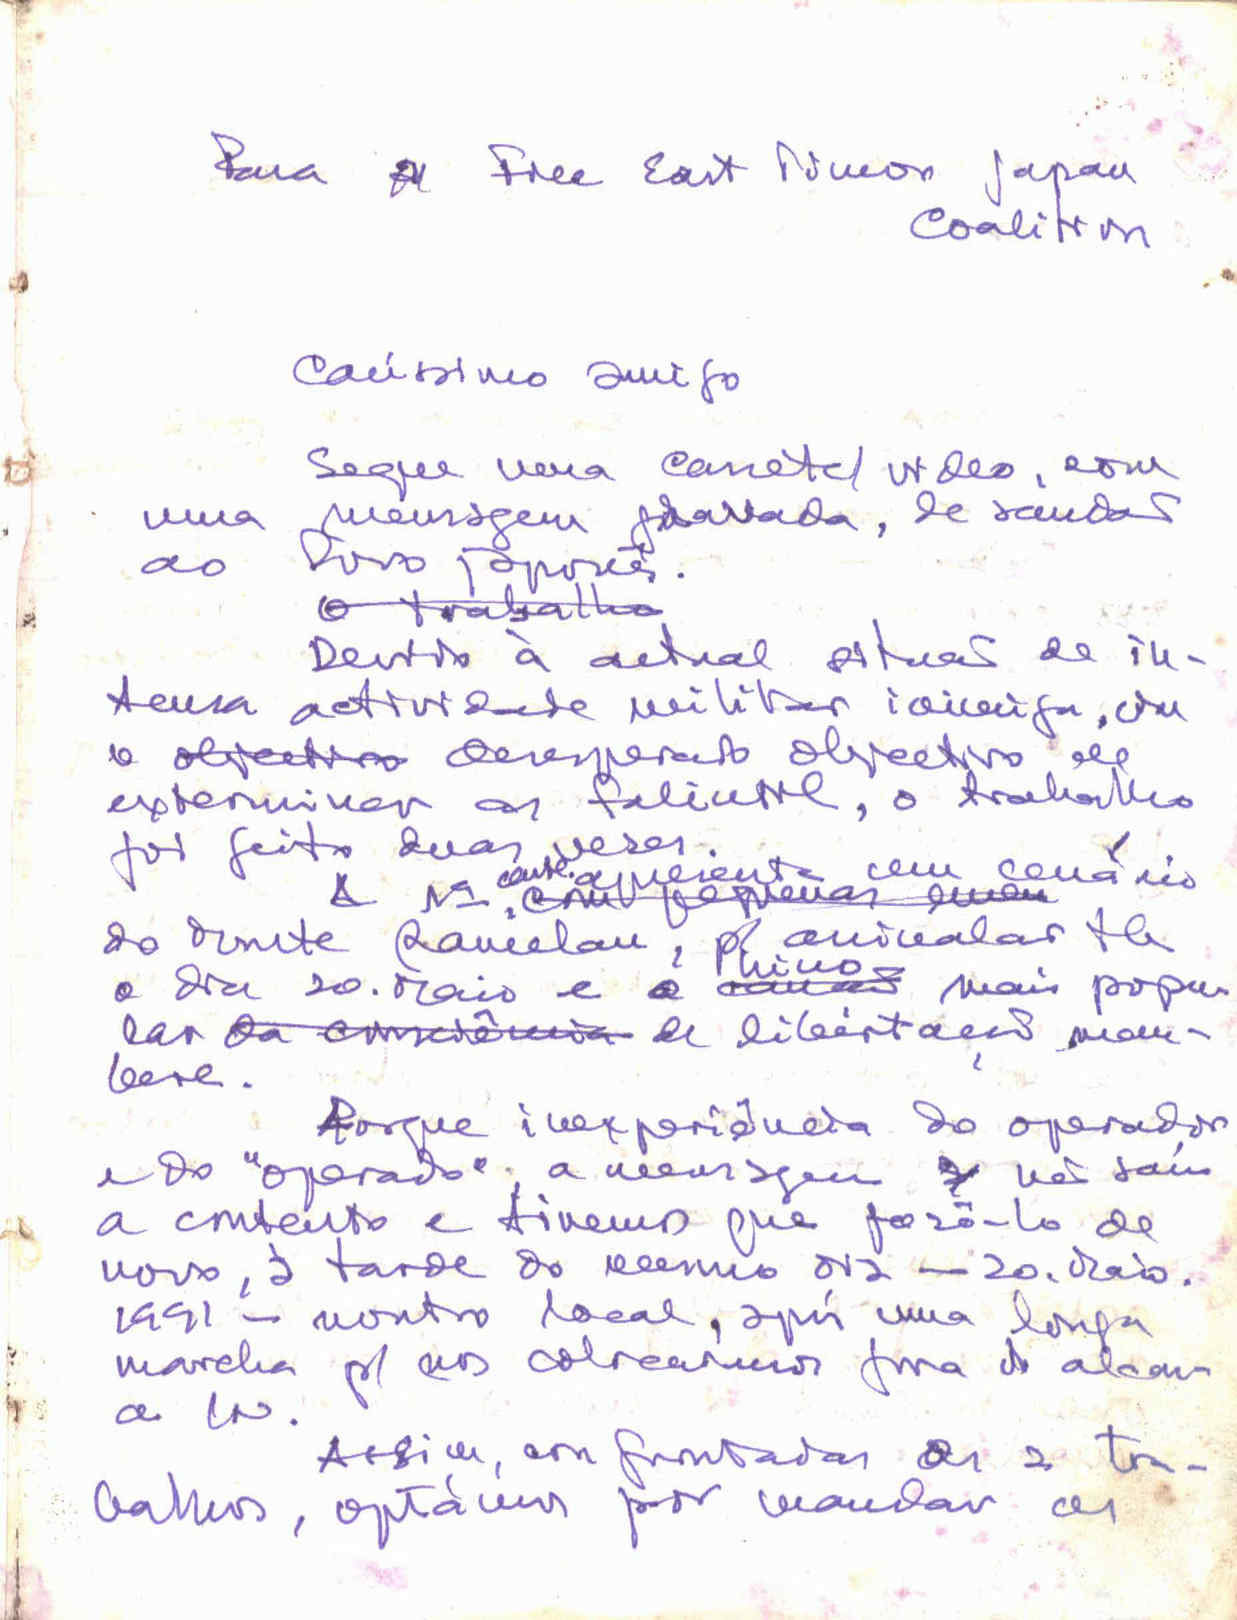 Para a Free East Timor Japan
Coalition
Caríssimo amigo
Segue uma cassete/video, com
uma mensagem gravada, de saudaç
ao Povo japonês.
O trabalho
Devido à actual situaç de in-
tensa actividade militar inimiga, com
o objectivo desesperado objectivo de
exterminar as Falintil, o trabalho
foi feito duas vezes.
A 1ª cass. apresenta um cenário
com pequenas
do Monte Ramelau, p/ assinalar
o dia 20. Maio e o Hino mais popu-
lar da consciência de libertação mau-
bere.
Porque inexperiência do operador
e do "operado", a mensagem não saíu
a contento e tivemos que fazê-lo de
novo, à tarde do mesmo dia — 20. Maio.
1991 — noutro local, após uma longa
marcha p/ nos colocarmos fora do alcan-
ce IN.
Assim, confrontadas os 2 tra-
balhos, optámos por mandar os